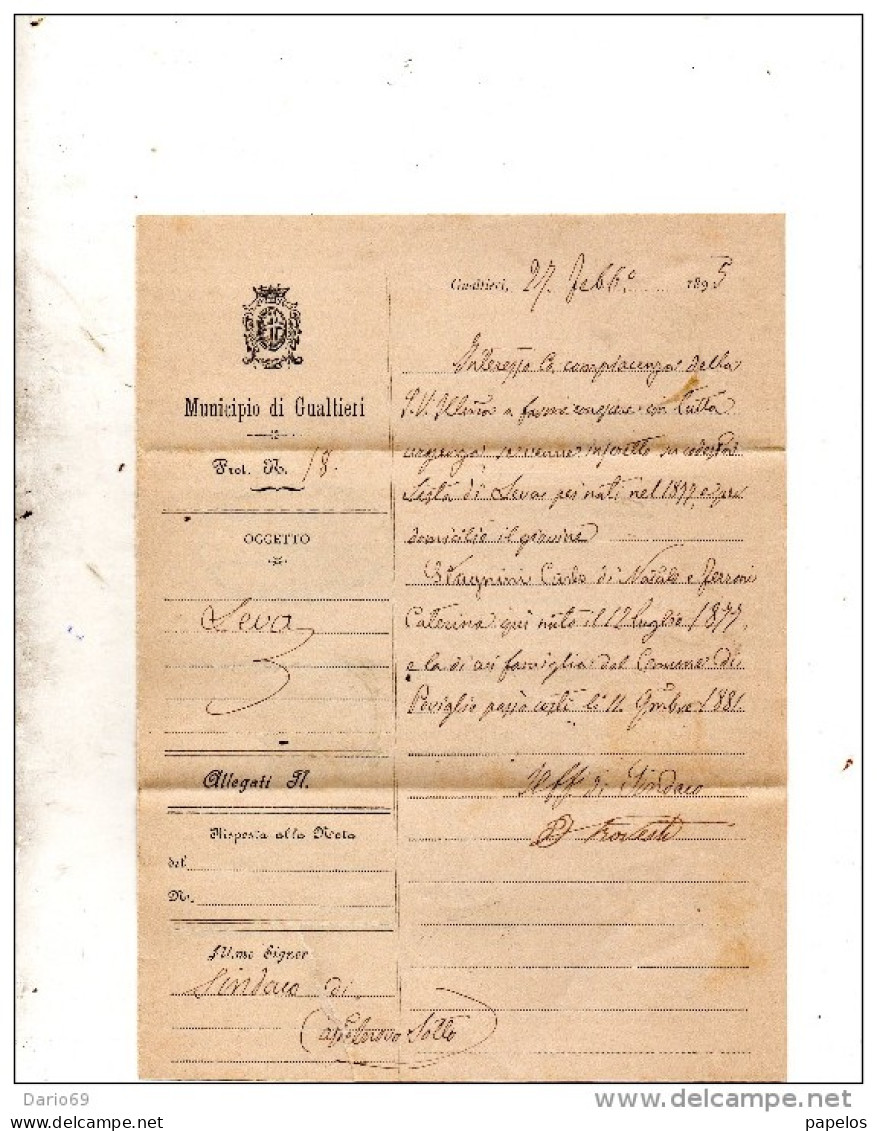 Gualtieri, 27. Febb.º 1895
Municipio di Gualtieri
Prot. N. 18.
OGGETTO
Leva
Allegati N.
Risposta alla Nota
del
N.
Ill.mo Signor
Sindaco di
Castelnovo Sotto
Interesso la compiacenza della
S.V. Ill.ma a favorirmi con tutta
urgenza se venne inscritto su codesta
Lista di Leva pei nati nel 1877 e per
domicilio il giovine
Stagnini Carlo di Natale e Ferroni
Caterina quì nato il 12 Luglio 1877,
e la di cui famiglia dal Comune di
Poviglio passò costì li 11. 9mbre 1881.
Il ff. di Sindaco
Dario69
delcampe.net
papelos